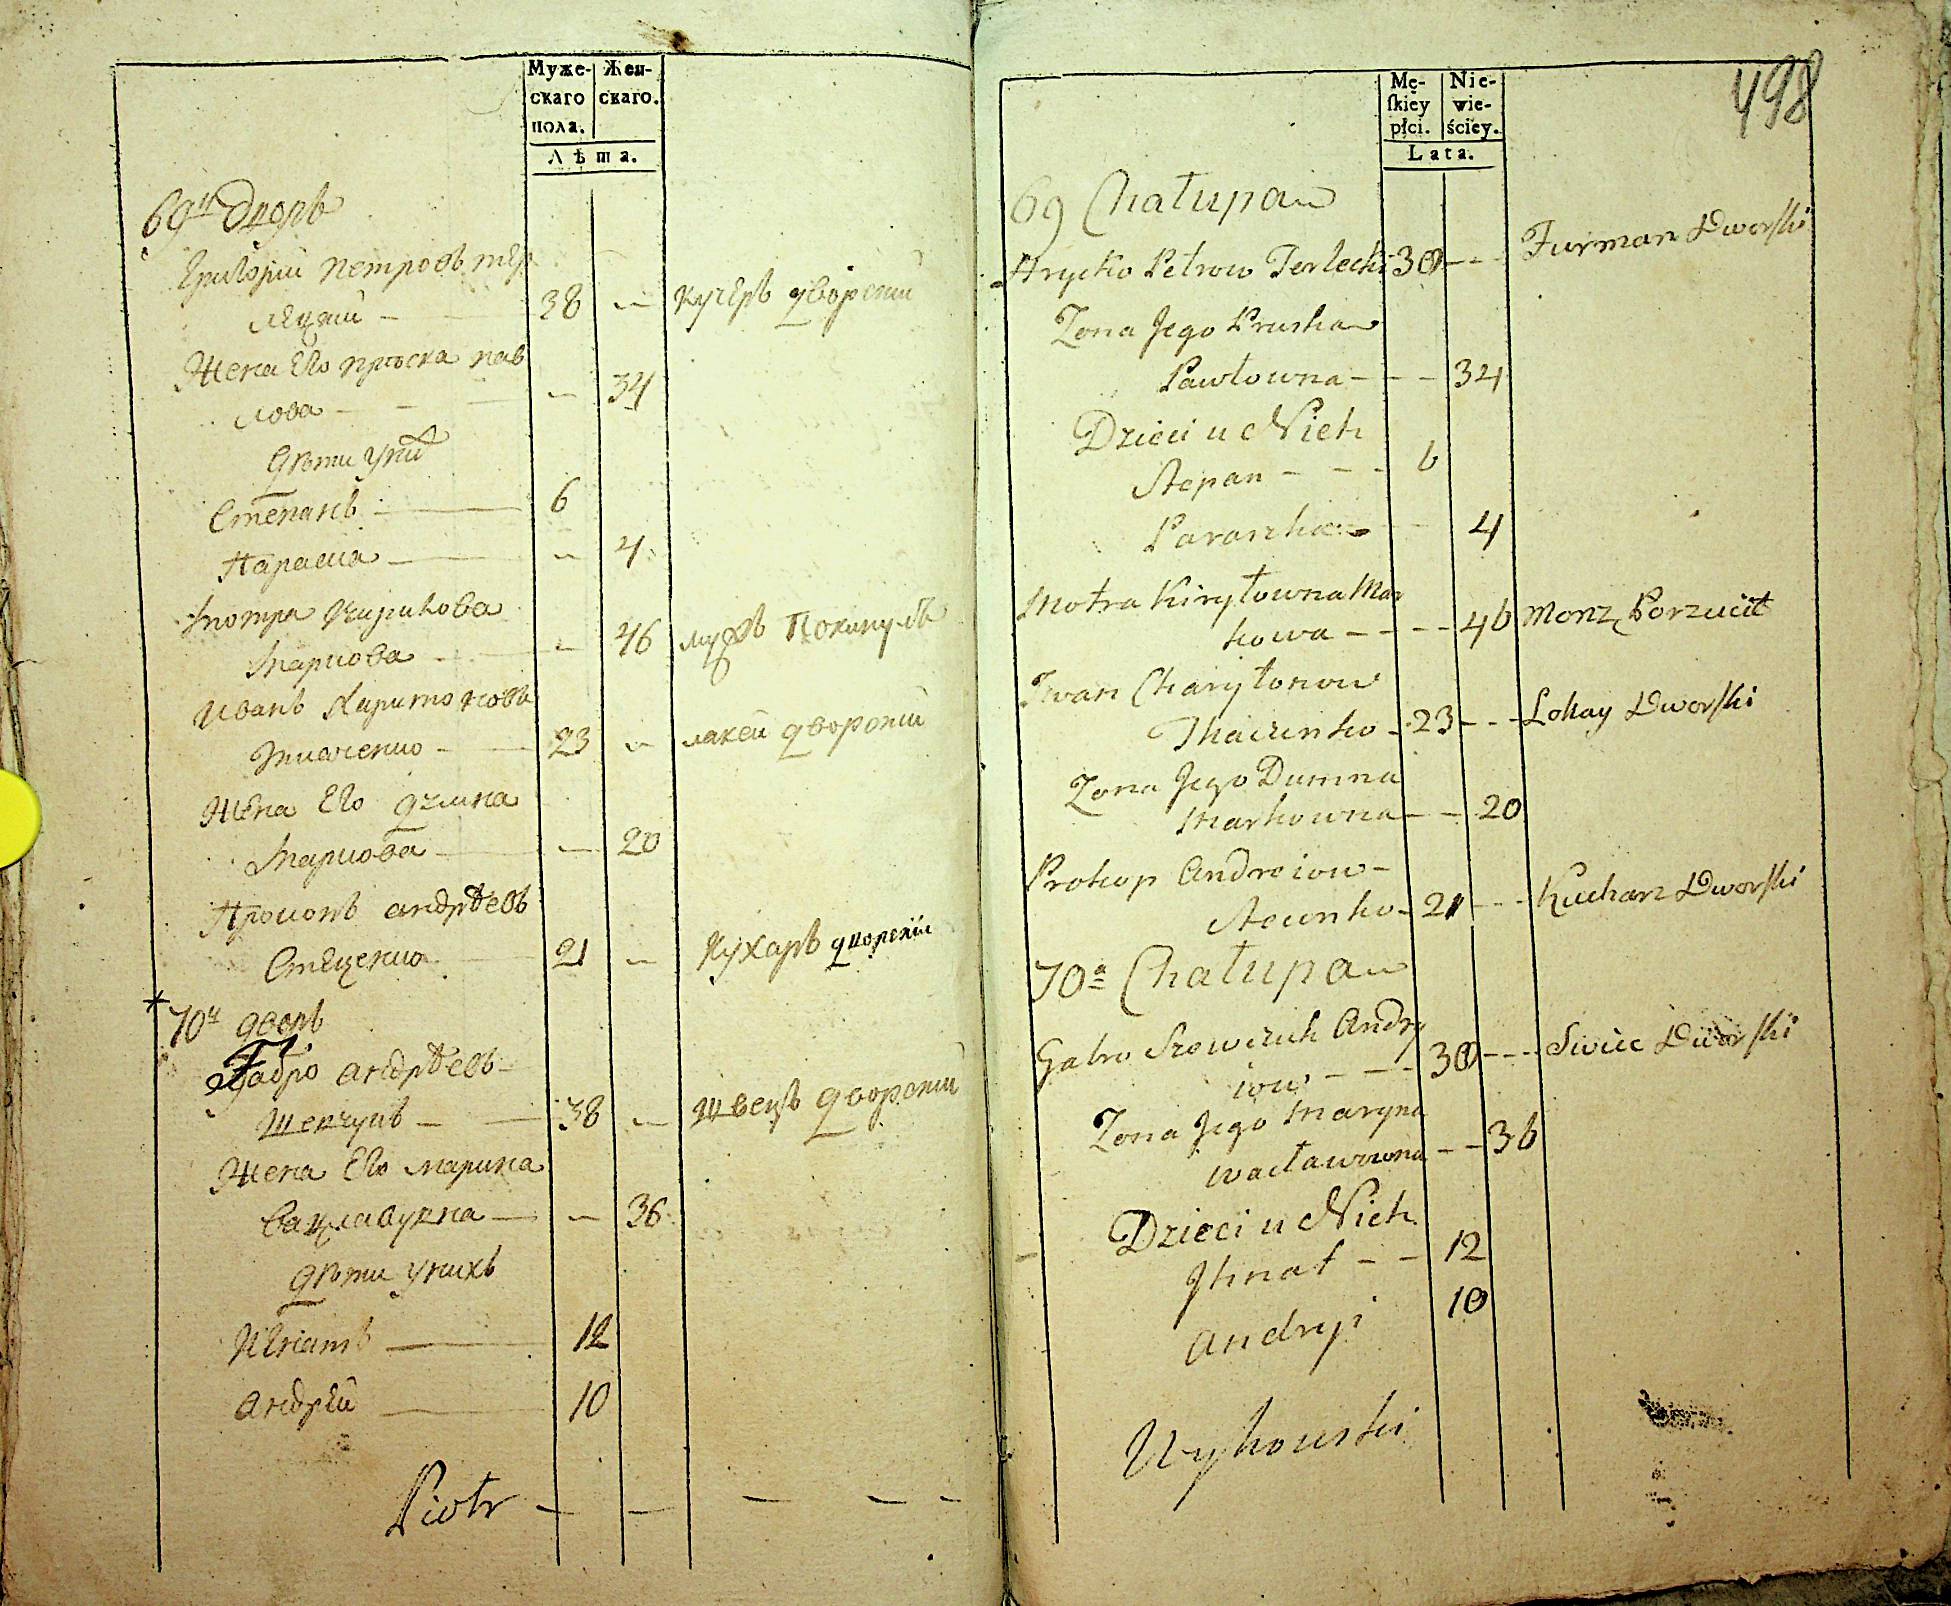 Муже-
скаго
пола.
Жен-
скаго.
Лѣта.
69й дворъ
Григорій Петровъ Тер
лецкій — 38 — кучеръ дворскій
Жена Его Пръска Пав
лова — — 34
Дѣти у них
Степанъ — 6
Параска — — 4
Мотра Кирикова
Маркова — — 46 мужъ покинулъ
Иванъ Харитоновъ
Ткаченко — 23 — лакей дворскій
Жена Его Думна
Маркова — — 20
Прокопъ Андрѣевъ
Стеценко 21 — кухаръ дворскій
70й дворъ
Габро Андрѣевъ
Шевчукъ — 38 — Швецъ дворскій
Жена Его Марина
Вацлавувна — — 36
Дѣти у нихъ
Игнатъ — 12
Андрей — 10
Piotr — — — — —
498
Mę-
ſkiéy
płci.
Nie-
wie-
ściéy.
Lata.
69 Chałupa
Hrycko Petrow Terlecki 38 - - - Furman Dworski
Zona Jego Pruska
Pawłowna - - - 34
Dzieci u Nich
Stepan - - - 6
Paraszka - - 4
Motra Kiryłowna Mar
kowa - - - - 46 Monz Porzucił
Iwan Charytonow
Tkaczenko - 23 - - - Lokay Dworski
Zona Jego Dumna
Markowna - - 20
Prokop Andreiow -
Stecenko - 21 - - - Kucharz Dworski
70a Chałupa
Gabro Szewczuk Andry
iow - - - 38 - - - Swiec Dworski
Zona Jego Maryna
Wacławowna - - 36
Dzieci u Nich
Ihnat - - 12
Andryi 10
Wyhowski